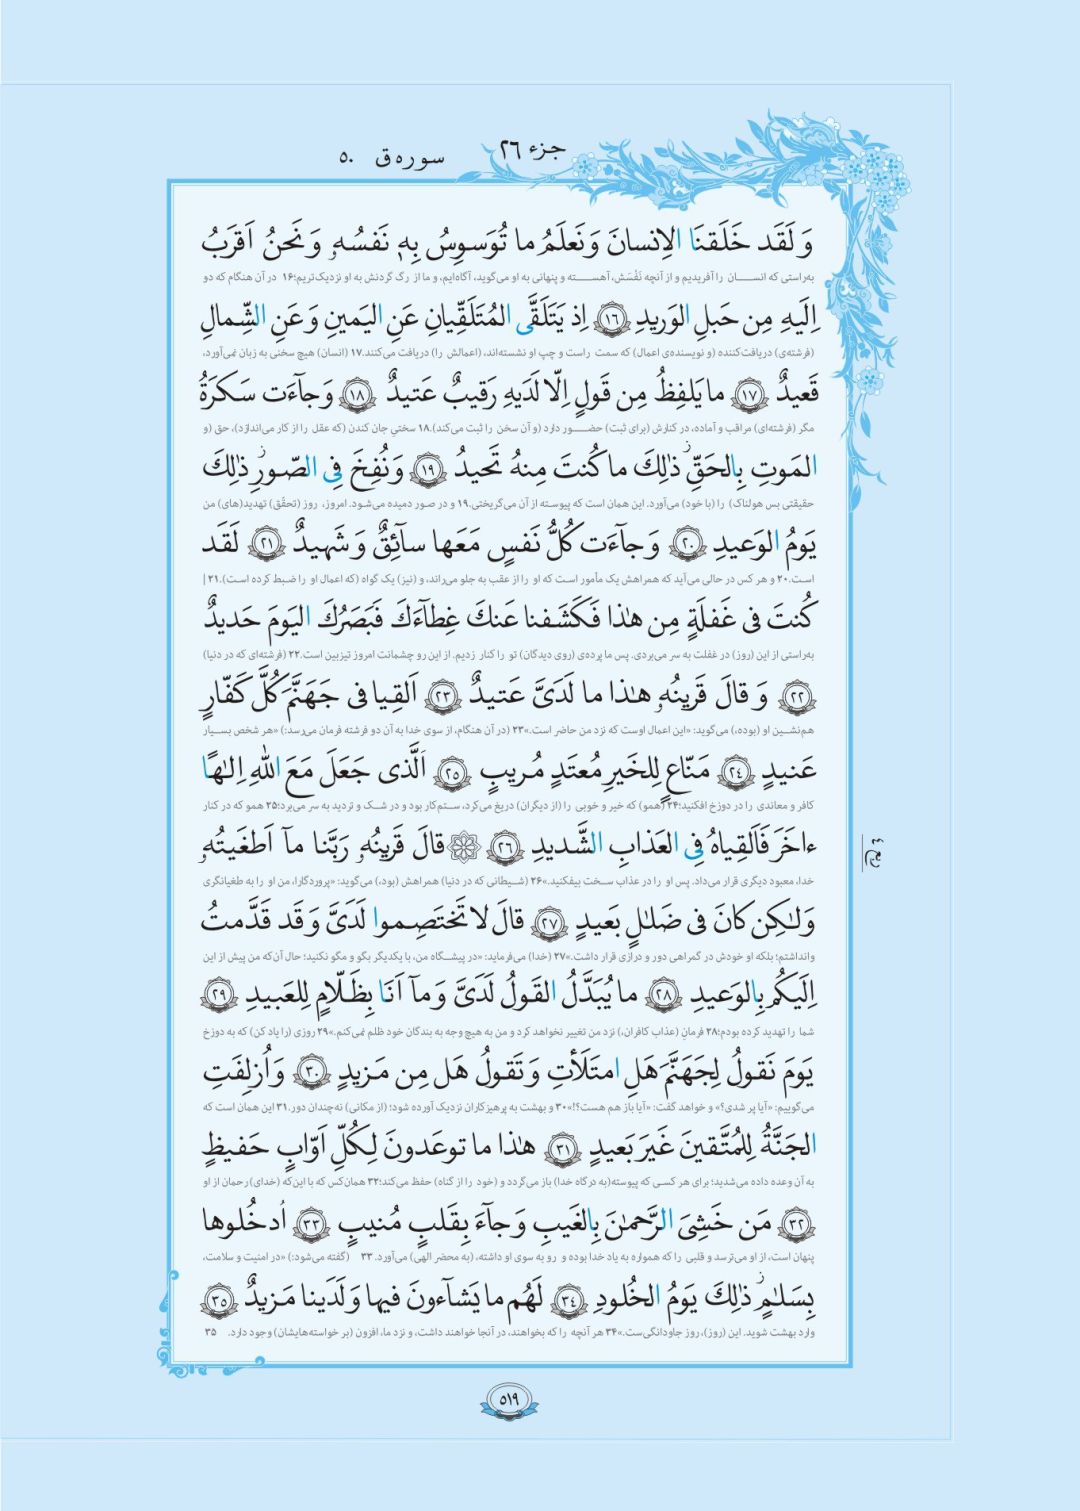 جزء ۲۶
سوره ق ۵۰
وَ لَقَد خَلَقنَا الاِنسانَ وَ نَعلَمُ ما تُوَسوِسُ بِهٖ نَفسُهٗ وَ نَحنُ اَقرَبُ
به‌راستی که انسان را آفریدیم و از آنچه نَفْسَش، آهسته و پنهانی به او می‌گوید، آگاه‌ایم، و ما از رگ گردنش به او نزدیک‌تریم؛۱۶ در آن هنگام که دو
اِلَیهِ مِن حَبلِ الوَریدِ ﴿۱۶﴾ اِذ یَتَلَقَّی المُتَلَقِّیانِ عَنِ الیَمینِ وَ عَنِ الشِّمالِ
(فرشته‌ی) دریافت‌کننده (و نویسنده‌ی اعمال) که سمت راست و چپ او نشسته‌اند، (اعمالش را) دریافت می‌کنند.۱۷ (انسان) هیچ سخنی به زبان نمی‌آورد،
قَعیدٌ ﴿۱۷﴾ ما یَلفِظُ مِن قَولٍ اِلّا لَدَیهِ رَقیبٌ عَتیدٌ ﴿۱۸﴾ وَ جآءَت سَکرَةُ
مگر (فرشته‌ای) مراقب و آماده، در کنارش (برای ثبت) حضور دارد (و آن سخن را ثبت می‌کند).۱۸ سختیِ جان کندن (که عقل را از کار می‌اندازد)، حق (و
المَوتِ بِالحَقِّ ذٰلِکَ ما کُنتَ مِنهُ تَحیدُ ﴿۱۹﴾ وَ نُفِخَ فِی الصّورِ ذٰلِکَ
حقیقتی بس هولناک) را (با خود) می‌آورد. این همان است که پیوسته از آن می‌گریختی.۱۹ و در صور دمیده می‌شود. امروز، روز (تحقّق) تهدید(های) من
یَومُ الوَعیدِ ﴿۲۰﴾ وَ جآءَت کُلُّ نَفسٍ مَعَها سآئِقٌ وَ شَهیدٌ ﴿۲۱﴾ لَقَد
است.۲۰ و هر کس در حالی می‌آید که همراهش یک مأمور است که او را از عقب به جلو می‌راند، و (نیز) یک گواه (که اعمال او را ضبط کرده است).۲۱ |
کُنتَ فی غَفلَةٍ مِن هٰذا فَکَشَفنا عَنکَ غِطآءَکَ فَبَصَرُکَ الیَومَ حَدیدٌ
به‌راستی از این (روز) در غفلت به سر می‌بردی. پس ما پرده‌ی (روی دیدگان) تو را کنار زدیم. از این رو چشمانت امروز تیزبین است.۲۲ (فرشته‌ای که در دنیا)
﴿۲۲﴾ وَ قالَ قَرینُهٗ هٰذا ما لَدَیَّ عَتیدٌ ﴿۲۳﴾ اَلقِیا فی جَهَنَّمَ کُلَّ کَفّارٍ
هم‌نشین او (بوده،) می‌گوید: «این اعمال اوست که نزد من حاضر است.»۲۳ (در آن هنگام، از سوی خدا به آن دو فرشته فرمان می‌رسد:) «هر شخص بسیار
عَنیدٍ ﴿۲۴﴾ مَنّاعٍ لِلخَیرِ مُعتَدٍ مُریبٍ ﴿۲۵﴾ اَلَّذی جَعَلَ مَعَ اللهِ اِلٰهًا
کافر و معاندی را در دوزخ افکنید؛۲۴ (همو) که خیر و خوبی را (از دیگران) دریغ می‌کرد، ستم‌کار بود و در شک و تردید به سر می‌برد؛۲۵ همو که در کنار
ءاخَرَ فَاَلقِیاهُ فِی العَذابِ الشَّدیدِ ﴿۲۶﴾ قالَ قَرینُهٗ رَبَّنا مآ اَطغَیتُهٗ
خدا، معبود دیگری قرار می‌داد. پس او را در عذاب سخت بیفکنید.»۲۶ (شیطانی که در دنیا) همراهش (بود،) می‌گوید: «پروردگارا، من او را به طغیانگری
ربع ٤
وَ لٰکِن کانَ فی ضَلٰلٍ بَعیدٍ ﴿۲۷﴾ قالَ لا تَختَصِموا لَدَیَّ وَ قَد قَدَّمتُ
وانداشتم؛ بلکه او خودش در گمراهی دور و درازی قرار داشت.»۲۷ (خدا) می‌فرماید: «در پیشگاه من، با یکدیگر بگو و مگو نکنید؛ حال آن‌که من پیش از این
اِلَیکُم بِالوَعیدِ ﴿۲۸﴾ ما یُبَدَّلُ القَولُ لَدَیَّ وَ مآ اَنَا بِظَلّامٍ لِلعَبیدِ ﴿۲۹﴾
شما را تهدید کرده بودم؛۲۸ فرمانِ (عذاب کافران،) نزد من تغییر نخواهد کرد و من به هیچ وجه به بندگان خود ظلم نمی‌کنم.»۲۹ روزی (را یاد کن) که به دوزخ
یَومَ نَقولُ لِجَهَنَّمَ هَلِ امتَلَأتِ وَ تَقولُ هَل مِن مَزیدٍ ﴿۳۰﴾ وَ اُزلِفَتِ
می‌گوییم: «آیا پر شدی؟» و خواهد گفت: «آیا باز هم هست؟!»۳۰ و بهشت به پرهیزکاران نزدیک آورده شود؛ (از مکانی) نه‌چندان دور.۳۱ این همان است که
الجَنَّةُ لِلمُتَّقینَ غَیرَ بَعیدٍ ﴿۳۱﴾ هٰذا ما توعَدونَ لِکُلِّ اَوّابٍ حَفیظٍ
به آن وعده داده می‌شدید؛ برای هر کسی که پیوسته (به درگاه خدا) باز می‌گردد و (خود را از گناه) حفظ می‌کند؛۳۲ همان کس که با این‌که (خدای) رحمان از او
﴿۳۲﴾ مَن خَشِیَ الرَّحمٰنَ بِالغَیبِ وَ جآءَ بِقَلبٍ مُنیبٍ ﴿۳۳﴾ اُدخُلوها
پنهان است، از او می‌ترسد و قلبی را که همواره به یاد خدا بوده و رو به سوی او داشته، (به محضر الهی) می‌آورد. ۳۳ (گفته می‌شود:) «در امنیت و سلامت،
بِسَلٰمٍ ذٰلِکَ یَومُ الخُلودِ ﴿۳۴﴾ لَهُم ما یَشآءونَ فیها وَ لَدَینا مَزیدٌ ﴿۳۵﴾
وارد بهشت شوید. این (روز)، روز جاودانگی‌ست.»۳۴ هر آنچه را که بخواهند، در آنجا خواهند داشت، و نزد ما، افزون (بر خواسته‌هایشان) وجود دارد. ۳۵
۵۱۹